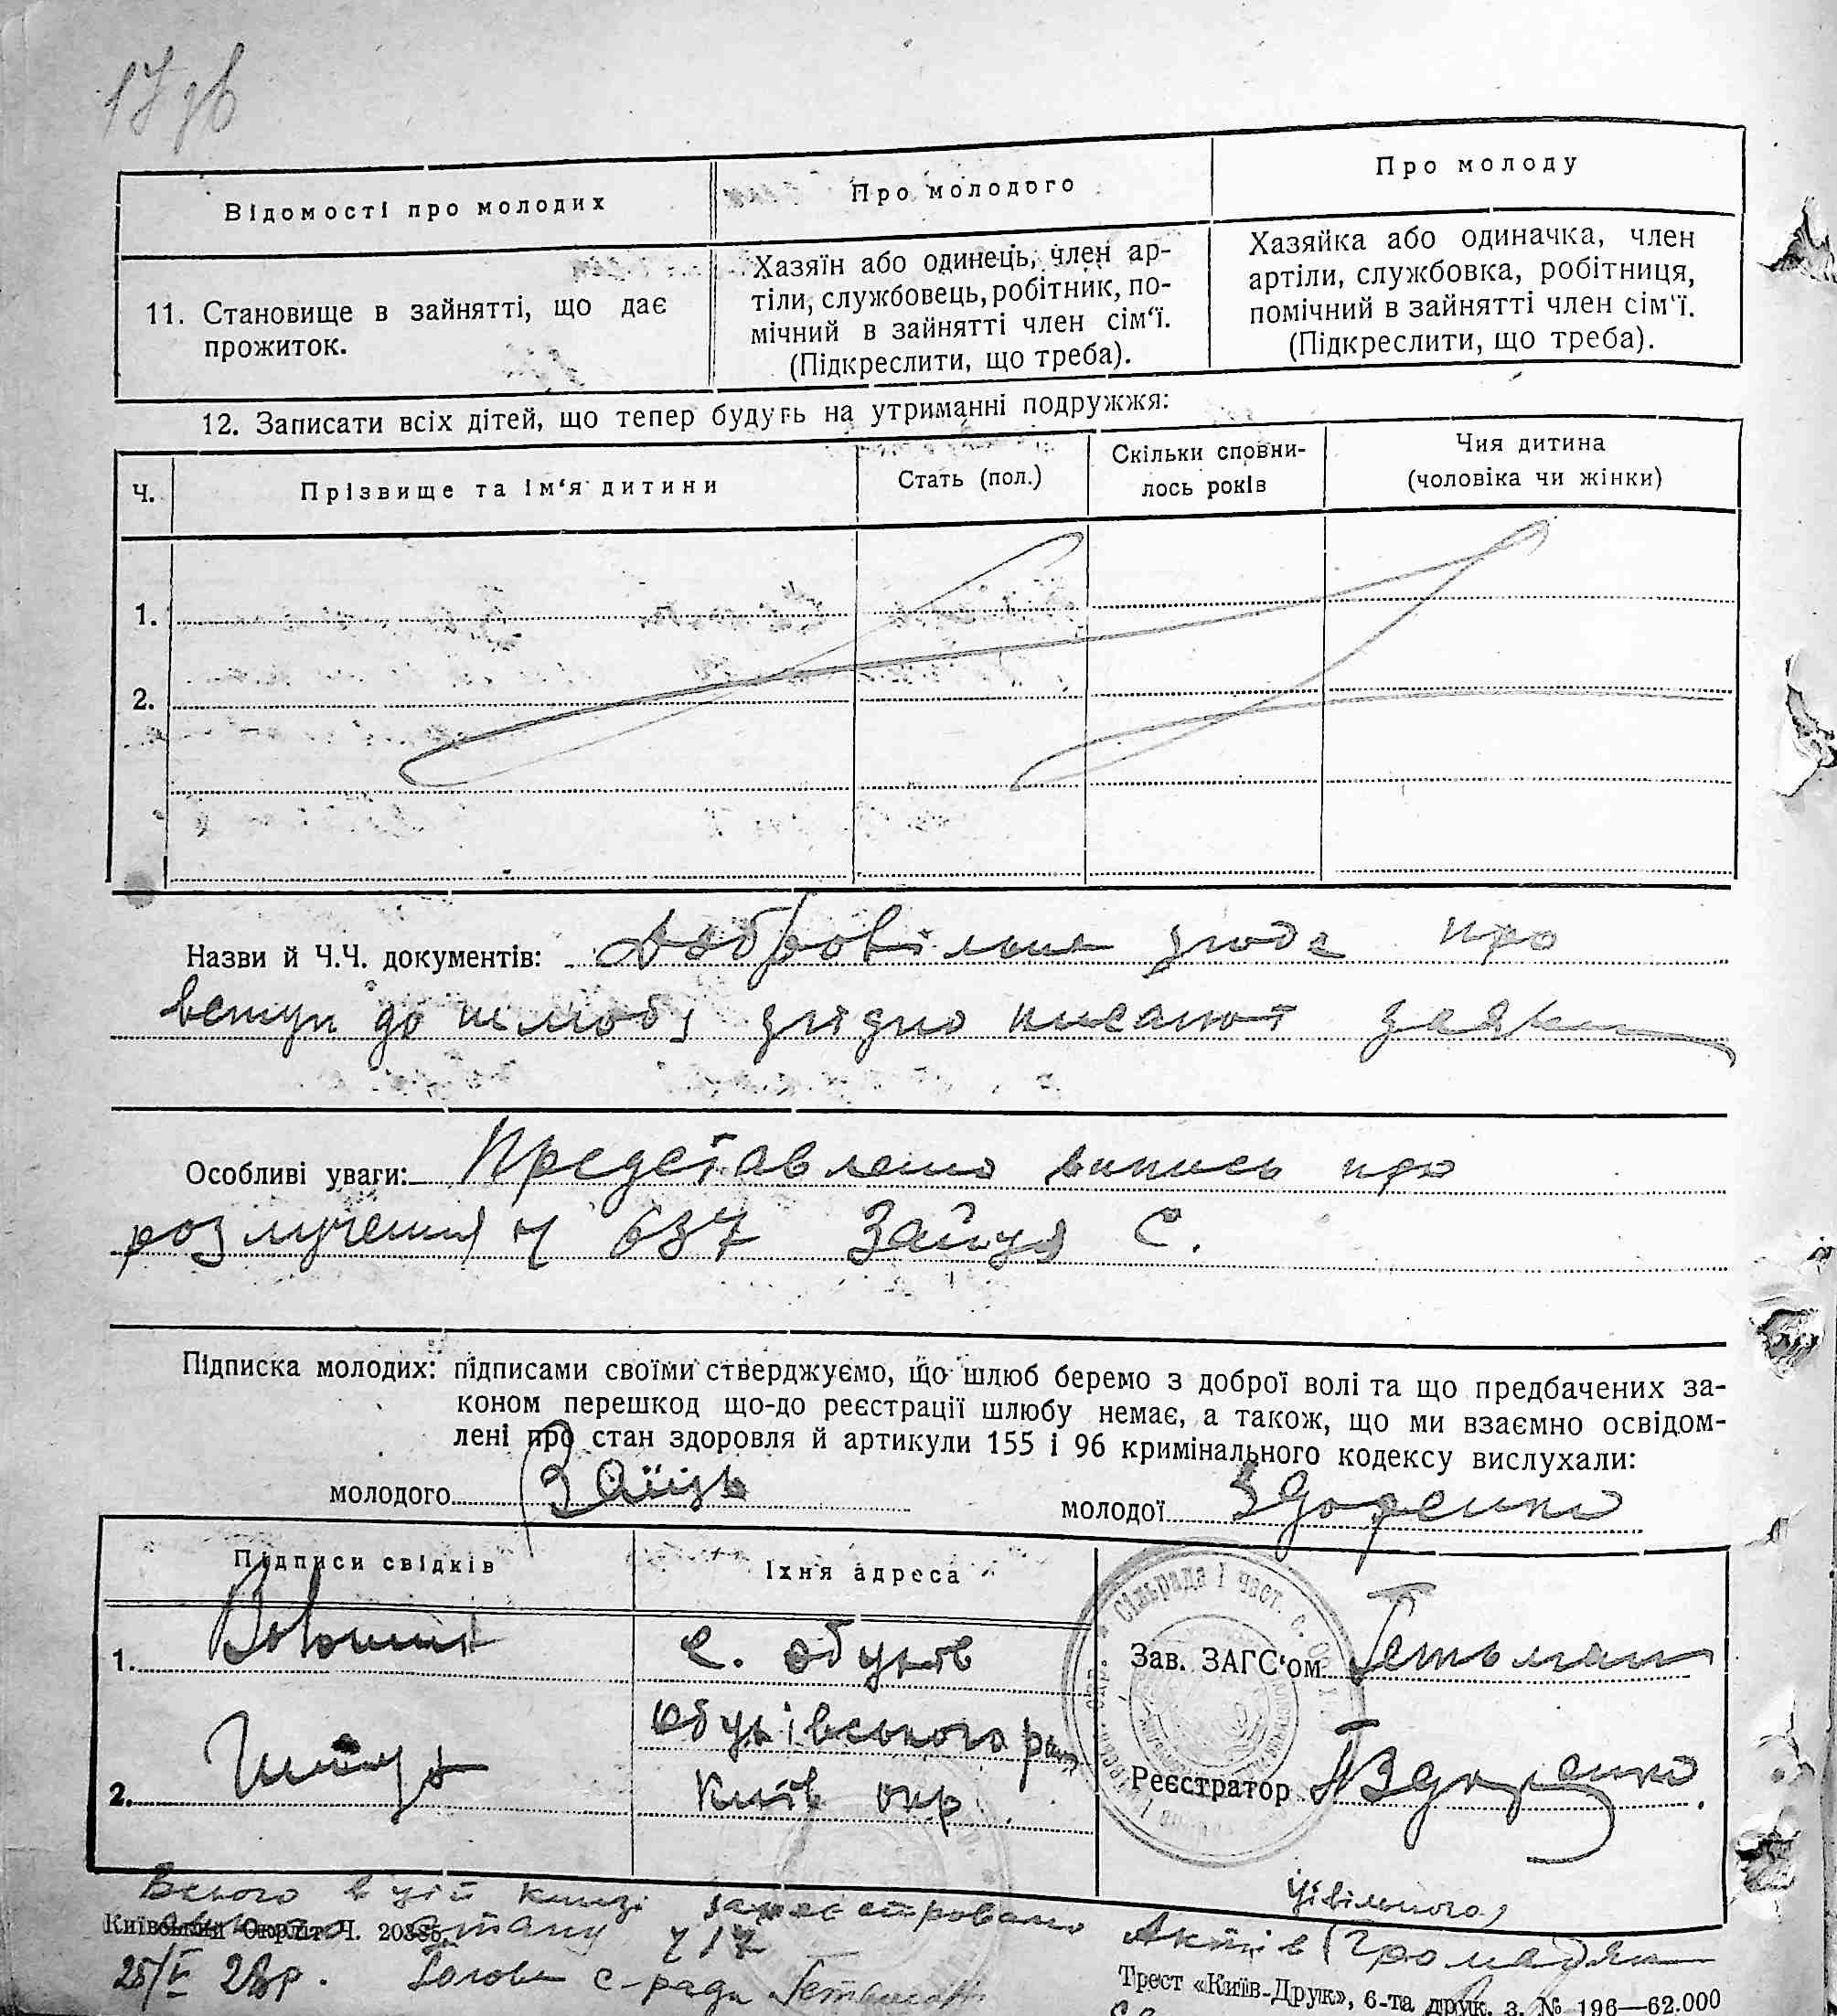 17 зв
Відомості про молодих
Про молодого
Про молоду
11. Становище в зайнятті, що дає
прожиток.
Хазяїн або одинець, член ар-
тіли, службовець, робітник, по-
мічний в зайнятті член сім'ї.
(Підкреслити, що треба).
Хазяйка або одиначка, член
артіли, службовка, робітниця,
помічний в зайнятті член сім'ї.
(Підкреслити, що треба).
12. Записати всіх дітей, що тепер будуть на утриманні подружжя:
Ч.
Прізвище та ім'я дитини
Стать (пол.)
Скільки сповни-
лось років
Чия дитина
(чоловіка чи жінки)
1.
2.
Назви й Ч.Ч. документів: Добровільна згода про
вступ до шлюбу згідно писаної заяви
Особливі уваги: Представлено випись про
розлучення ч 637 Зайця С.
Підписка молодих: підписами своїми стверджуємо, що шлюб беремо з доброї волі та що предбачених за-
коном перешкод що-до реєстрації шлюбу немає, а також, що ми взаємно освідом-
лені про стан здоровля й артикули 155 і 96 кримінального кодексу вислухали:
молодого Заїць
молодої Здоренко
Підписи свідків
Їхня адреса
1.
с. Обухів
Обухівського рай
2.
Київ окр.
Сільрада І част. с.
Зав. ЗАГС'ом Гетьман
Реєстратор Здоренко
Всього в цій книзі зареєстровано Актів Громадян
цівільного
стану ч 17
Київський Окрліт Ч. 20385.
25/V 28 р. Голова с-ради Гетьман
Трест «Київ-Друк», 6-та друк. з. № 196—62.000